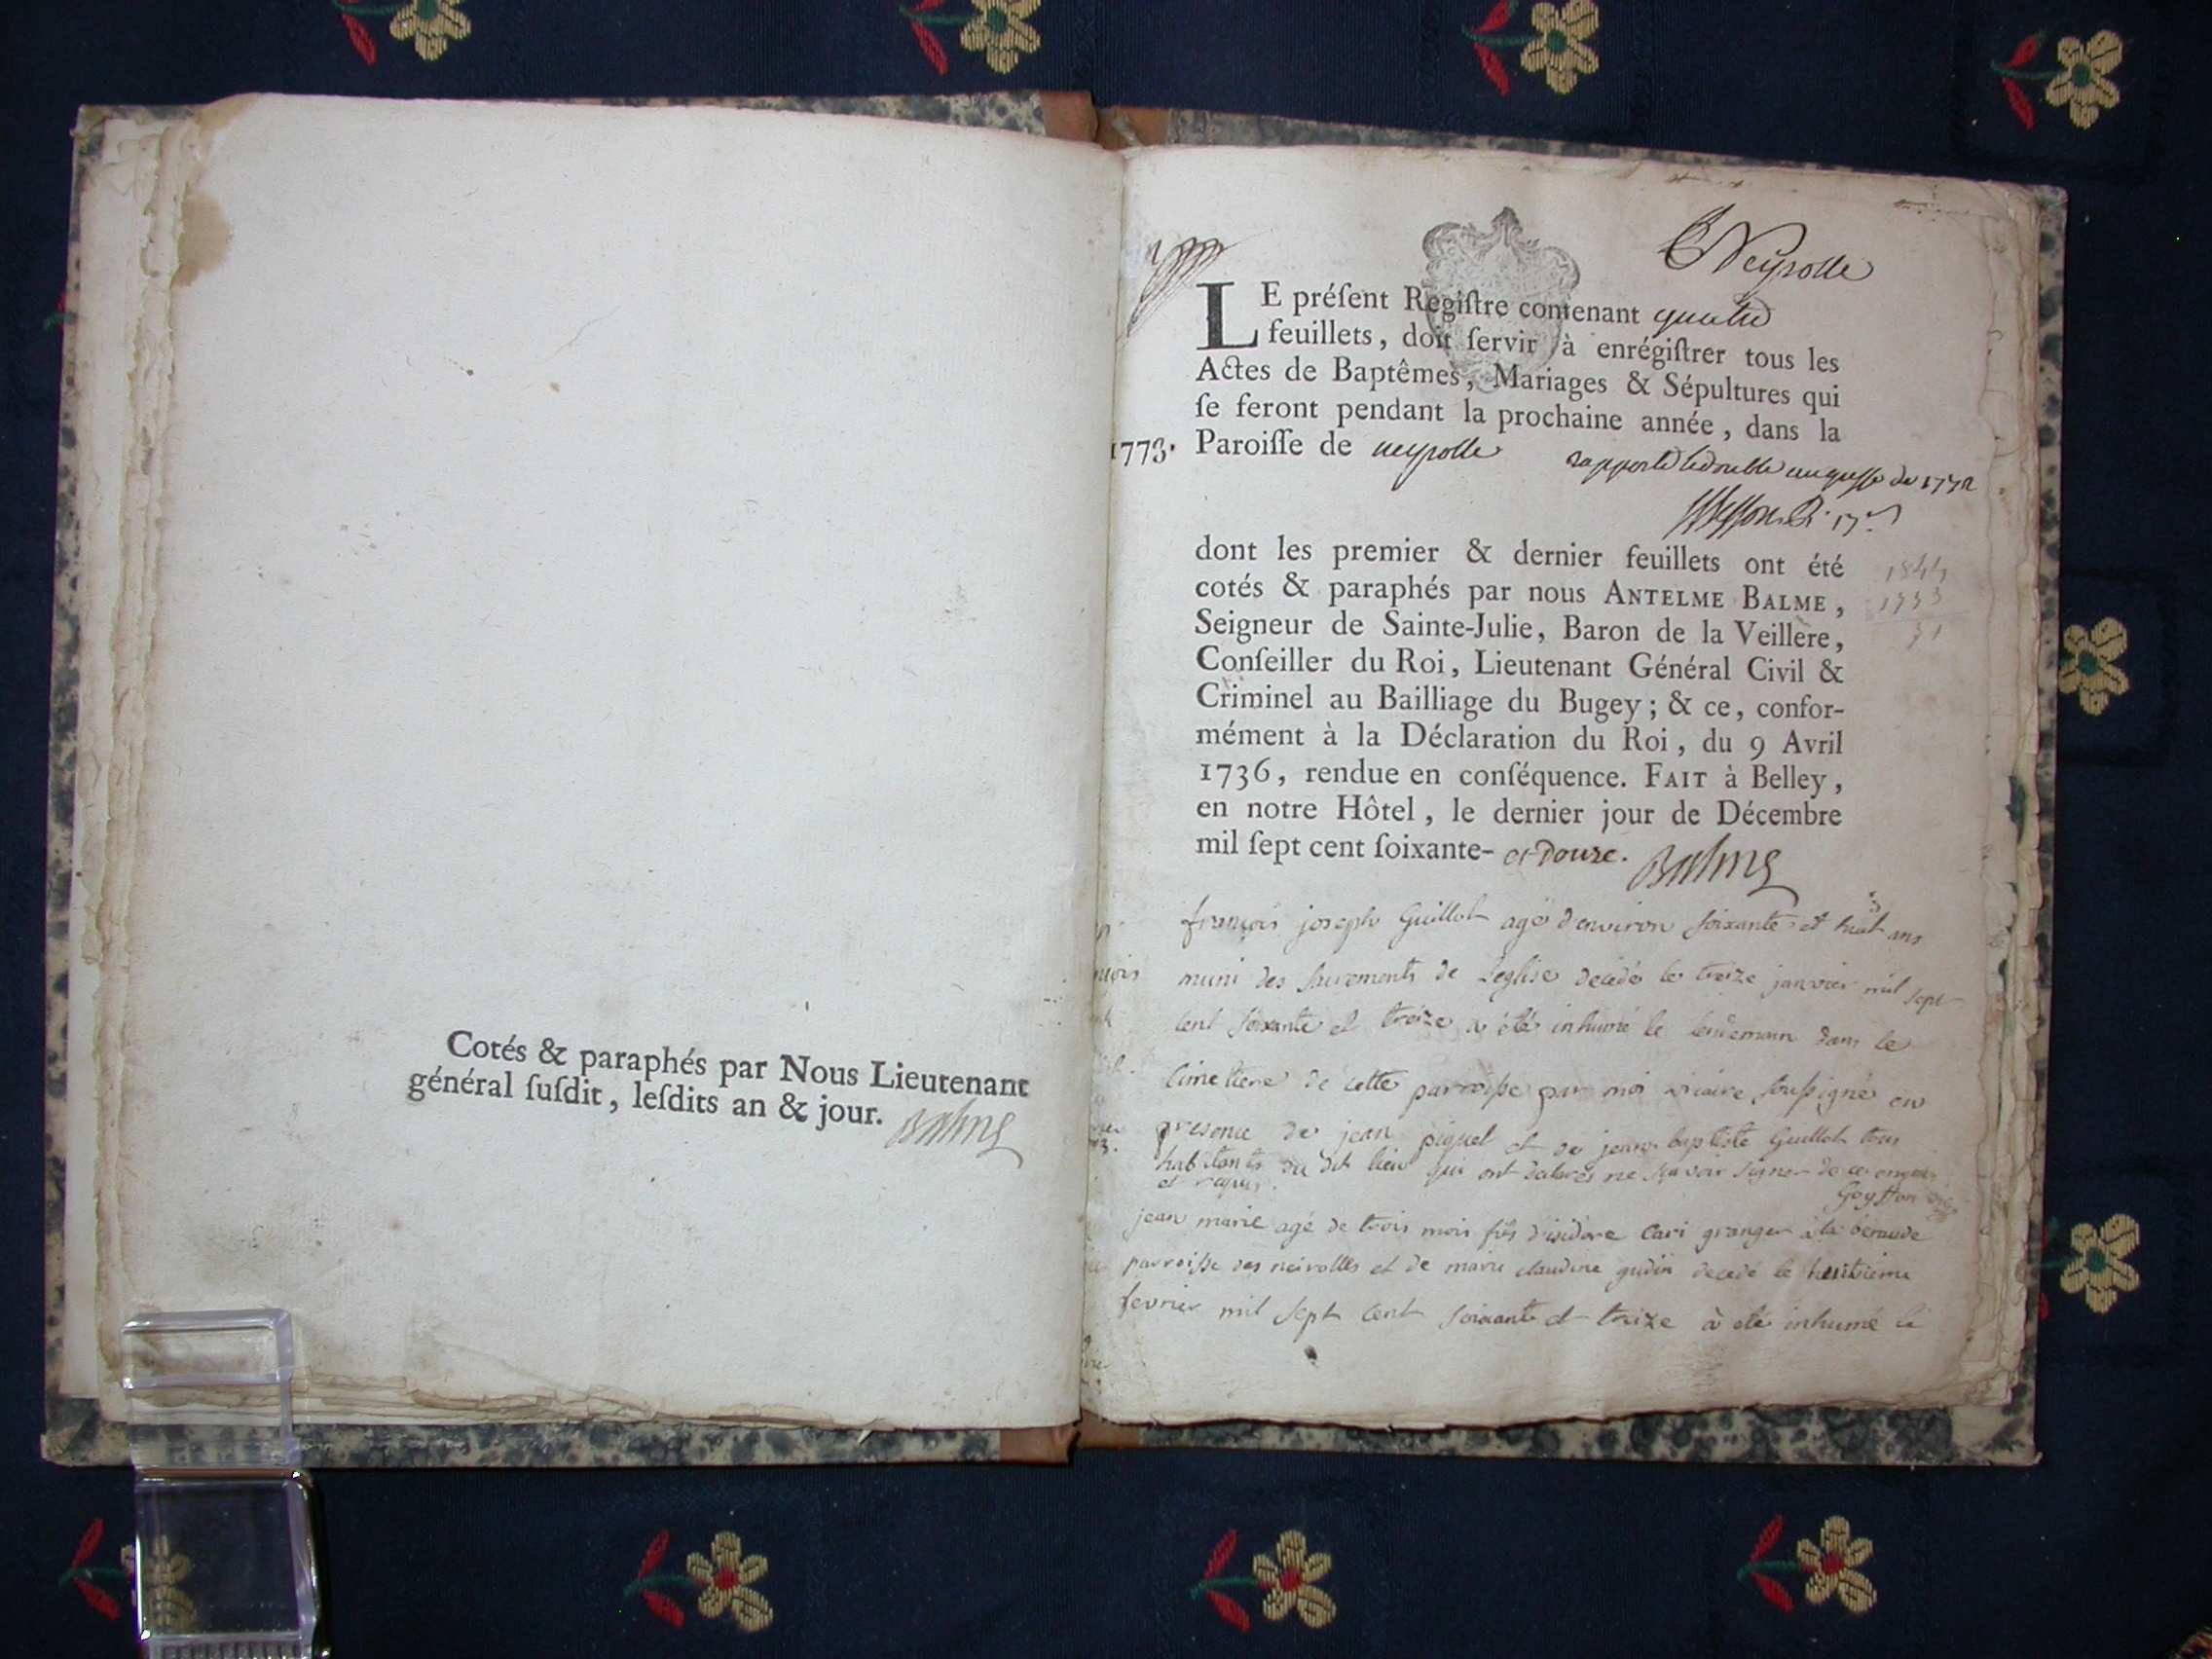 Cotés & paraphés par Nous Lieutenant
général ſuſdit, leſdits an & jour. Balme
Neyrolle
LE préſent Regiſtre contenant quatre
feuillets, doit ſervir à enrégiſtrer tous les
Actes de Baptêmes, Mariages & Sépultures qui
ſe feront pendant la prochaine année, dans la
1773. Paroiſſe de neyrolle
rapporté le double au greffe de 1772
dont les premier & dernier feuillets ont été
cotés & paraphés par nous ANTELME BALME,
Seigneur de Sainte-Julie, Baron de la Veillere,
Conſeiller du Roi, Lieutenant Général Civil &
Criminel au Bailliage du Bugey; & ce, confor-
mément à la Déclaration du Roi, du 9 Avril
1736, rendue en conſéquence. FAIT à Belley,
en notre Hôtel, le dernier jour de Décembre
mil ſept cent ſoixante- et douze. Balme
1844
1773
71
françois joseph Guillot agé d'environ soixante et huit ans
muni des sacrements de l'eglise decedé le treize janvier mil sept
cent soixante et treize a été inhumé le lendemain dans le
cimetiere de cette parroisse par moi vicaire soussigné en
presence de jean piquet et de jean baptiste Guillot tous
habitants du dit lieu qui ont declarés ne sçavoir signer de ce enquis
et requis.
jean marie agé de trois mois fils d'isidore Cari granger a la beraude
parroisse des neirolles et de marie claudine gudin decedé le huitieme
fevrier mil sept cent soixante et treize à eté inhumé le